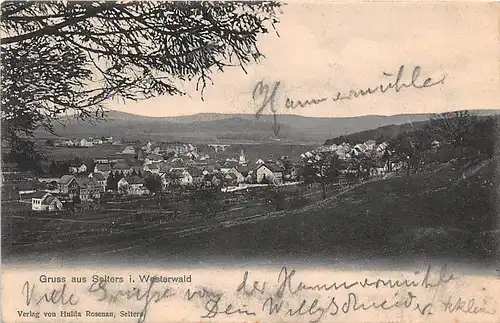 Hammermühle
Gruss aus Selters i. Westerwald
Viele Grüsse von der Hammermühle
Dein Willy Schneider
Verlag von Hulda Rosenau, Selters